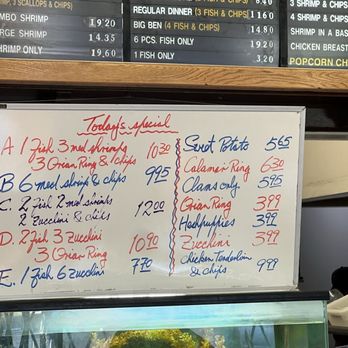 3 SCALLOPS & CHIPS)
MBO SHRIMP 19.20
RGE SHRIMP 14.35
SHRIMP 19.95
REGULAR DINNER (3 FISH & CHIPS) 11.60
BIG BEN (4 FISH & CHIPS) 14.80
6 PCS. FISH ONLY 19.20
1 FISH ONLY 3.40
3 SHRIMP & CHIPS
4 SHRIMP & CHIPS
SHRIMP IN A BAS
CHICKEN BREAST
POPCORN CH
Today's special
A 1 Fish 3 med shrimps
3 Onian Ring & chips 10.30
B 6 med shrimp & chips 9.95
C. 2 Fish 2 med shrimps
2 Zucchini & chips 12.00
D. 2 Fish 3 Zucchini
3 Onian Ring 10.90
E. 1 Fish 6 Zucchini 7.70
Sweet Potato 5.65
Calamari Ring 6.30
Clams only 5.95
Onian Ring 3.99
Hushpuppies 3.99
Zucchini 3.99
Chicken Tenderloin
& chips 9.99